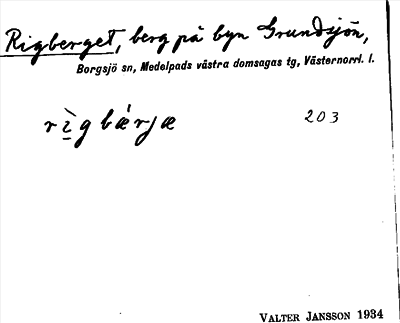 Rigberget, berg på byn Grundsjön,
Borgsjö sn, Medelpads västra domsagas tg, Västernorrl. l.
rì̱gbǽrjæ 203
VALTER JANSSON 1934